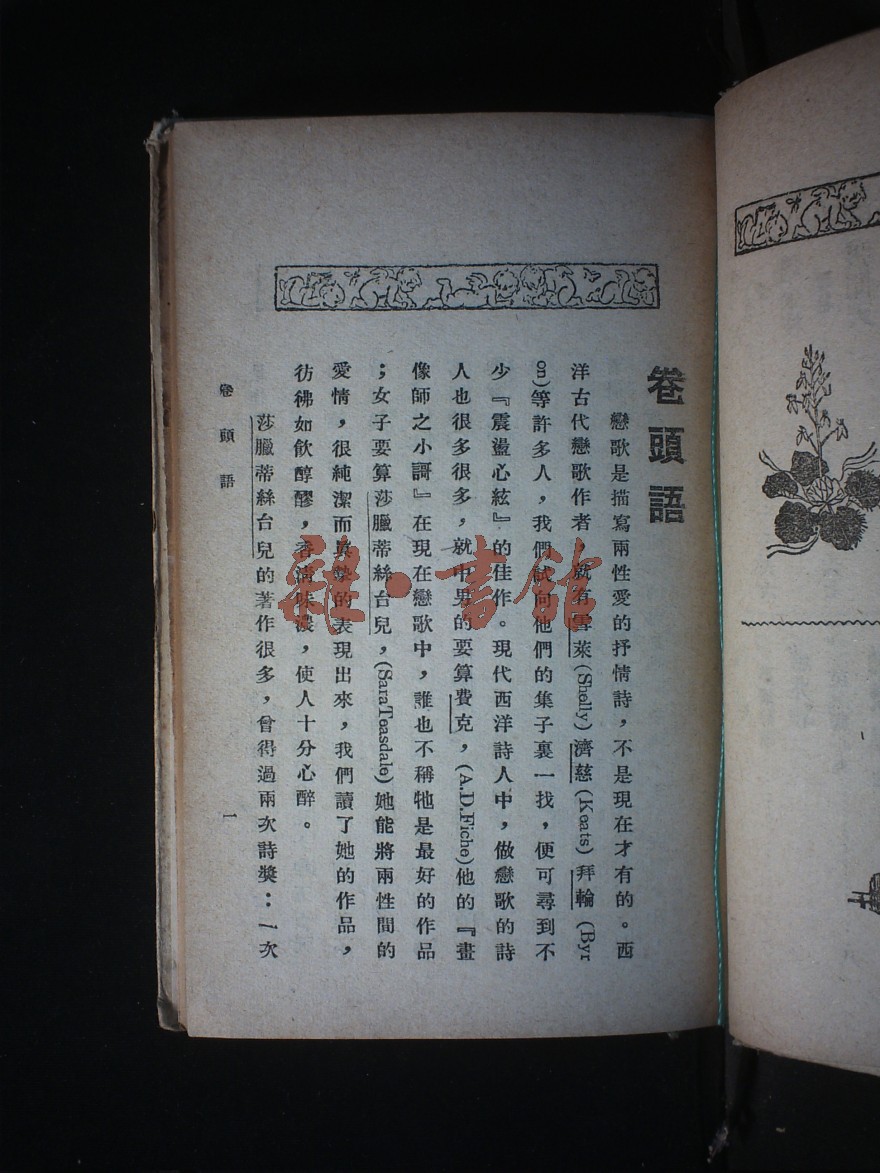 卷頭語
戀歌是描寫兩性愛的抒情詩，不是現在才有的。西
洋古代戀歌作者，就有雪萊(Shelly)濟慈(Keats)拜輪(Byr
on)等許多人，我們試向他們的集子裏一找，便可尋到不
少『震盪心絃』的佳作。現代西洋詩人中，做戀歌的詩
人也很多很多，就中男的要算費克，(A.D.Fiche)他的『畫
像師之小謌』在現在戀歌中，誰也不稱牠是最好的作品
；女子要算莎臘蒂絲台兒，(Sara Teasdale)她能將兩性間的
愛情，很純潔而眞摯的表現出來，我們讀了她的作品，
彷彿如飲醇醪，香清味濃，使人十分心醉。
莎臘蒂絲台兒的著作很多，曾得過兩次詩獎：一次
卷頭語
一
雜·書館